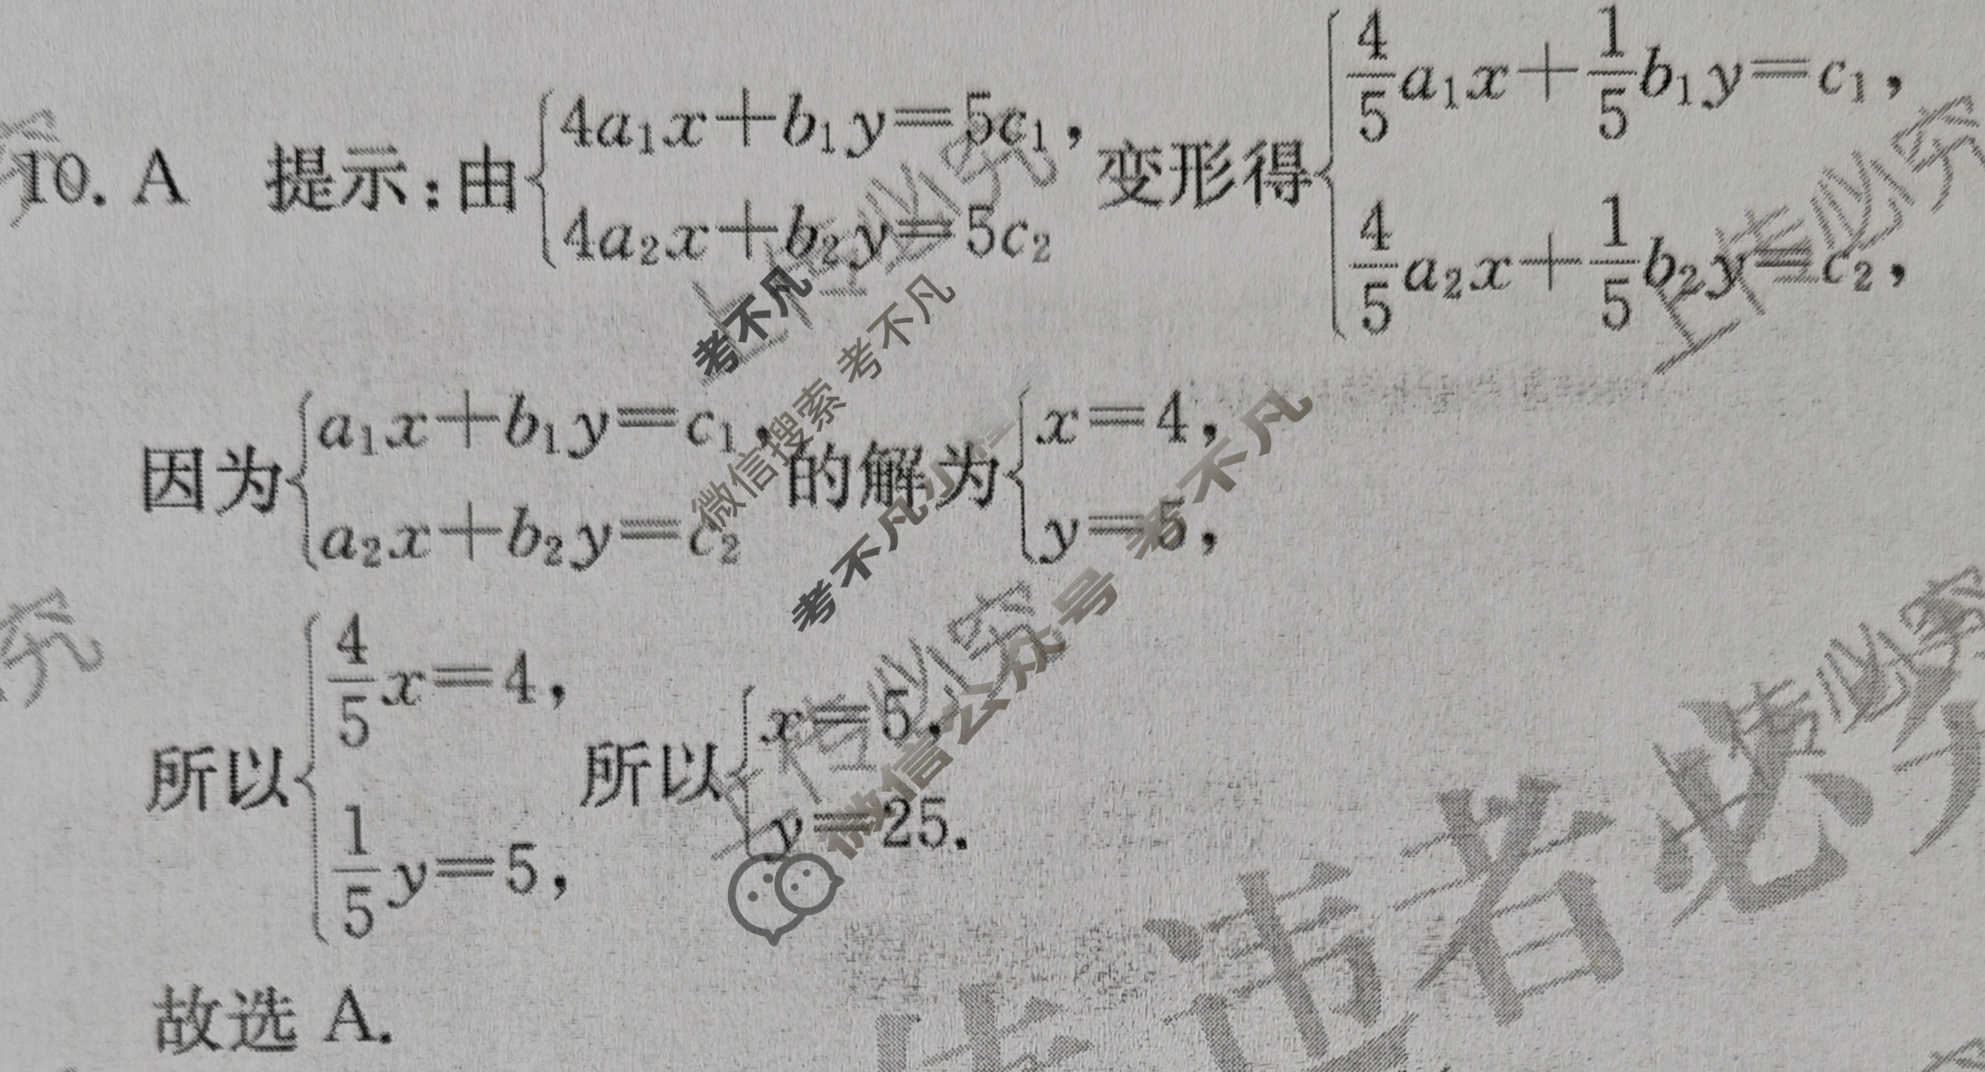 10. A 提示:由{4a₁x+b₁y=5c₁, 4a₂x+b₂y=5c₂ 变形得{4/5a₁x+1/5b₁y=c₁, 4/5a₂x+1/5b₂y=c₂,
因为{a₁x+b₁y=c₁, a₂x+b₂y=c₂ 的解为{x=4, y=5,
所以{4/5x=4, 1/5y=5, 所以{x=5, y=25.
故选 A.
考不凡
微信搜索 考不凡
考不凡
微信公众号 考不凡
上传必究
上传必究
上传必究
上传必究
究
究
违者必究